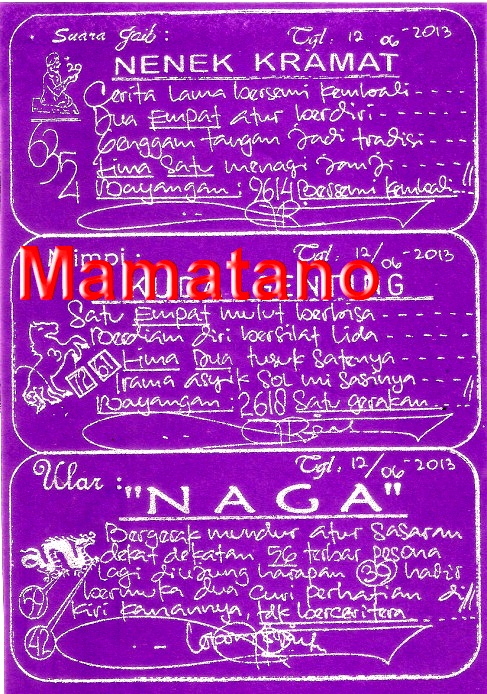 Suara Gaib : Tgl. 12/06-2013
NENEK KRAMAT
Cerita Lama bersemi kembali
Dua Empat atur berdiri
Genggam tangan jadi tradisi
Lima Satu menagi janji
Bayangan : 2614 Bersemi kembali
29
652
Mimpi : Tgl. 12/06-2013
Mamatano
Satu Empat mulut berbisa
Berdiam diri bersilat Lida
Lima Dua tusuk satenya
Irama asyik Sol mi sasinya
Bayangan : 2618 Satu gerakan
Ular : Tgl. 12/06-2013
"NAGA"
Bergerak mundur atur sasaran
dekat dekatan 56 tebar pesona
lagi diujung harapan hadir
bermuka dua curi perhatian di
kiri kanannya, tdk berceritera